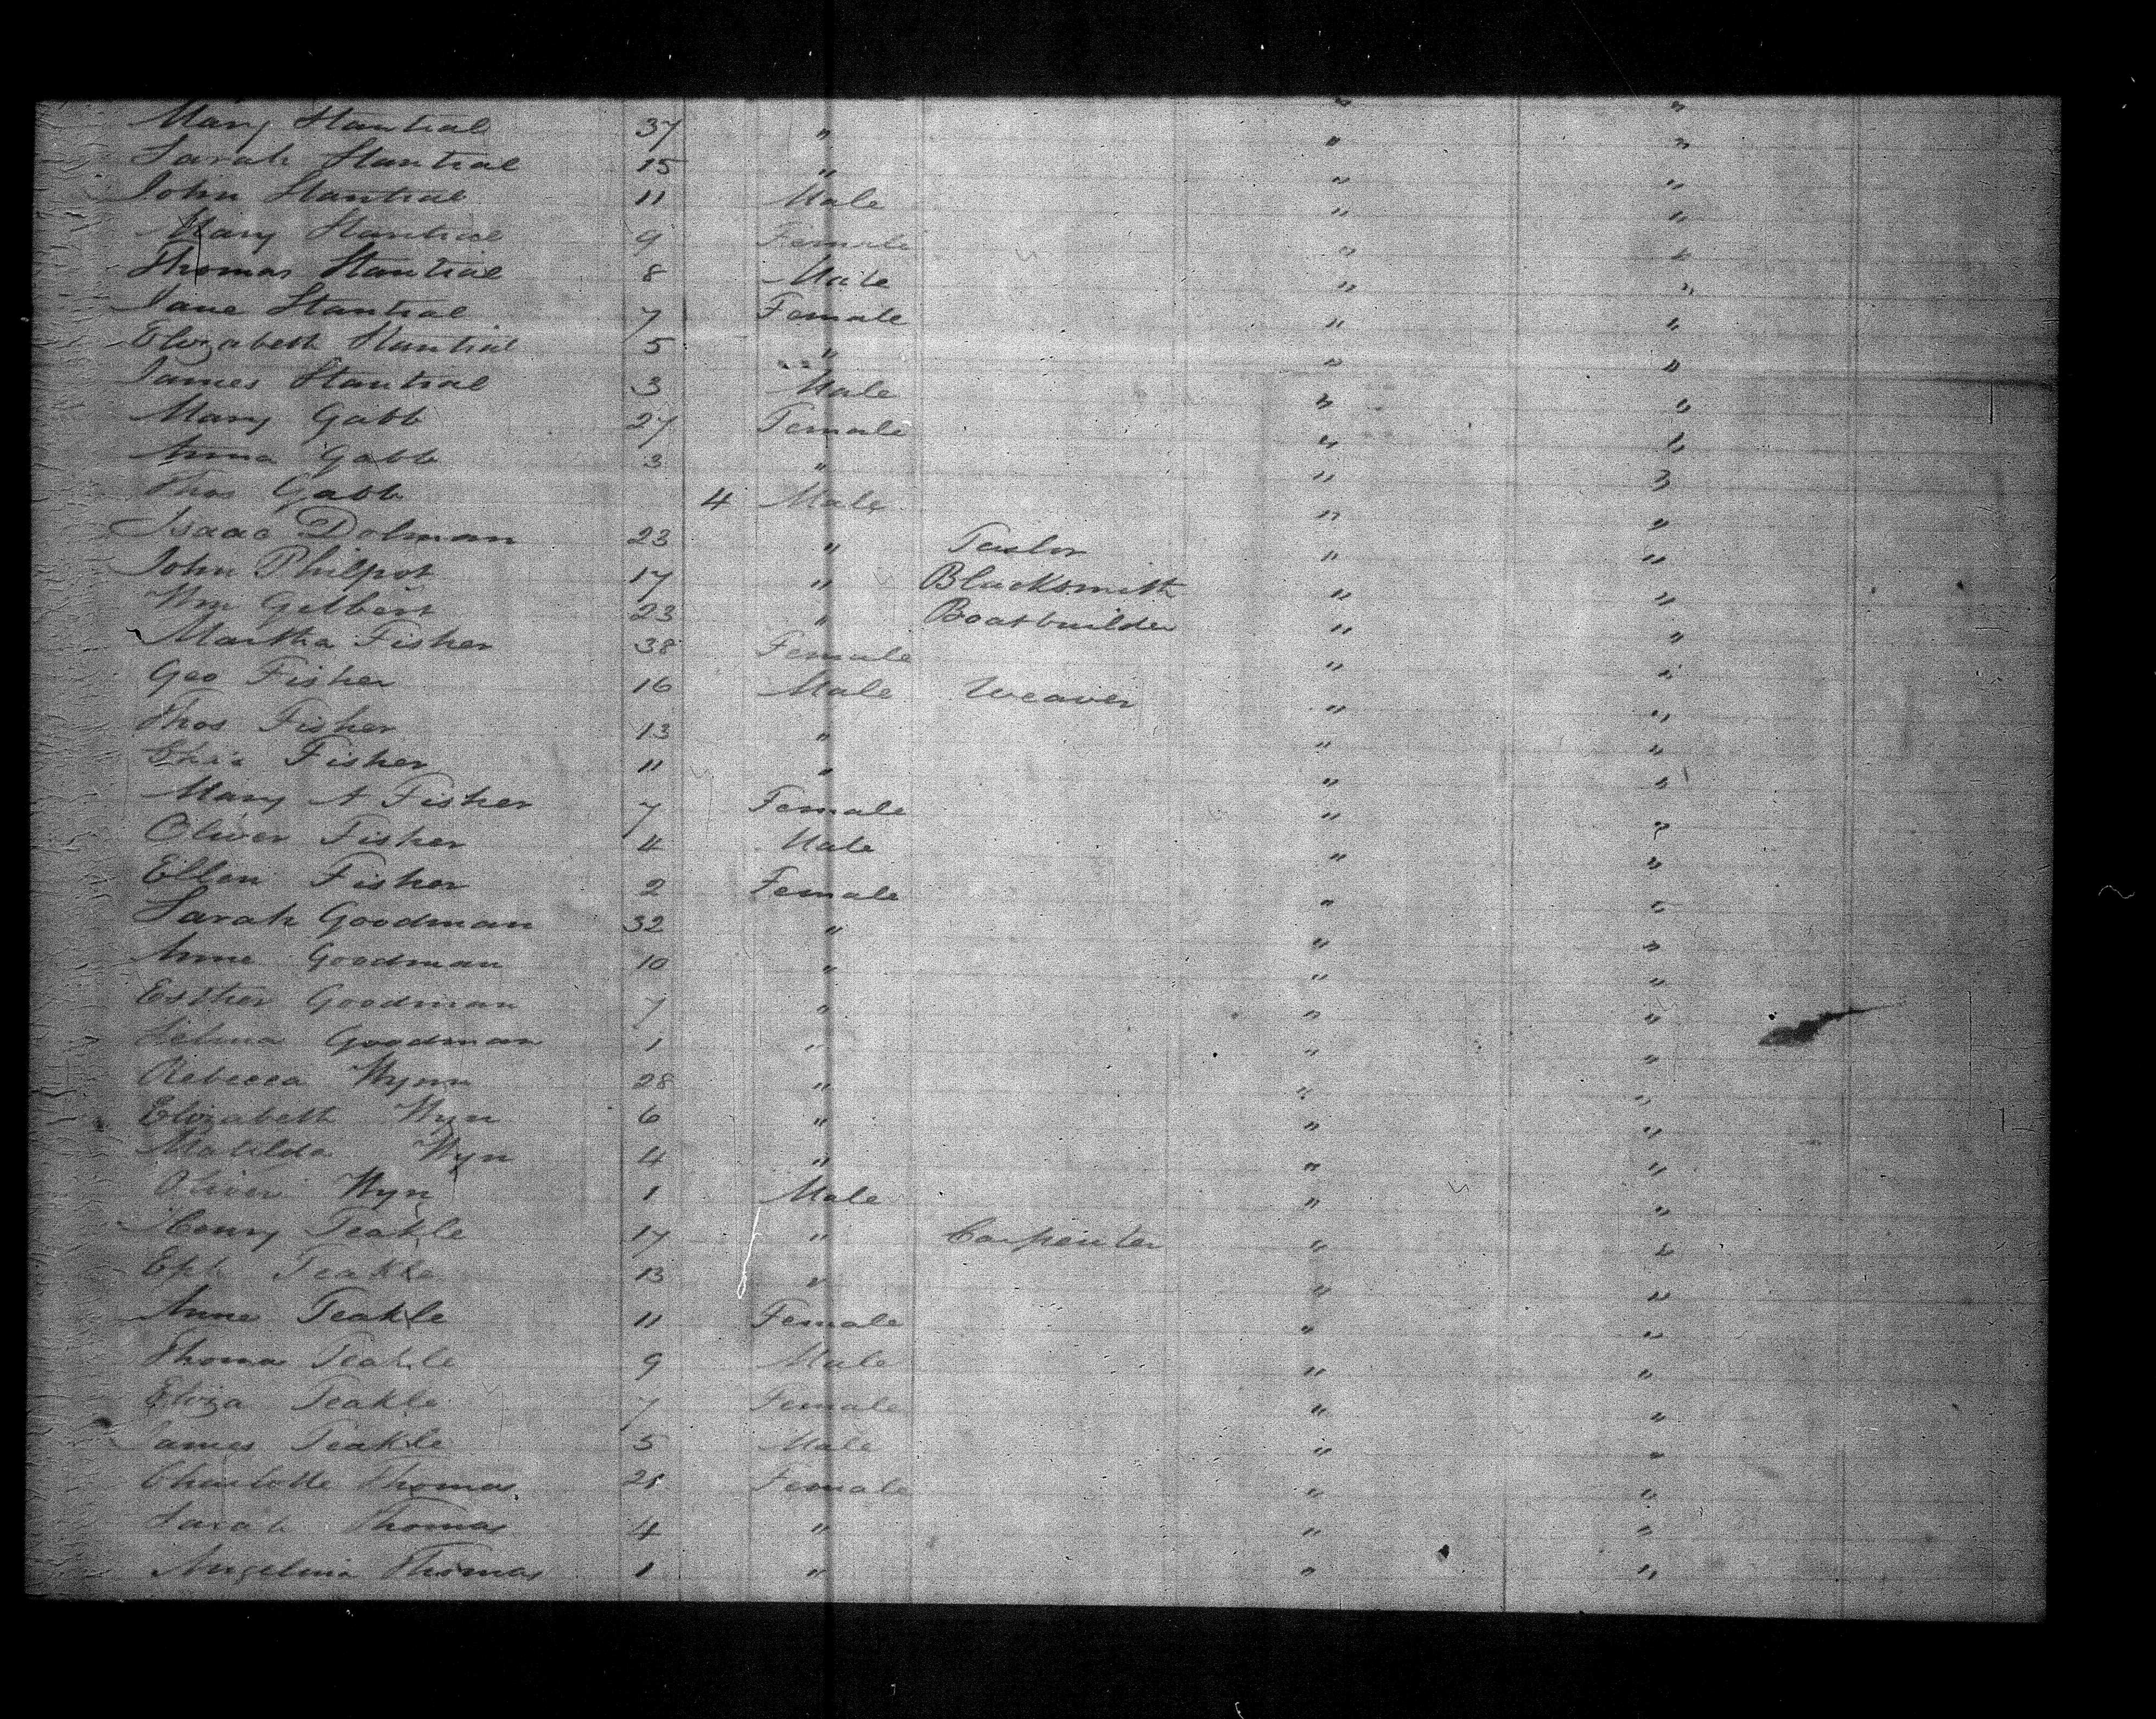 " "
Mary Stantial 37 " " "
Sarah Stantial 15 " " "
John Stantial 11 Male " "
Mary Stantial 9 Female " "
Thomas Stantial 8 Male " "
Jane Stantial 7 Female " "
Elizabeth Stantial 5 " " "
James Stantial 3 Male " "
Mary Gabb 27 Female " "
Anna Gabb 3 " " "
Thos Gabb 4 Male " "
Isaac Dolman 23 " Taylor " "
John Philpot 17 " Blacksmith " "
Wm Gelbert 23 " Boatbuilder " "
Martha Fisher 38 Female " "
Geo Fisher 16 Male Weaver " "
Thos Fisher 13 " " "
Fisher 11 " " "
Mary A Fisher 7 Female " "
Oliver Fisher 4 Male " "
Ellen Fisher 2 Female " "
Sarah Goodman 32 " " "
Anne Goodman 10 " " "
Esther Goodman 7 " " "
Selina Goodman 1 " " "
Rebecca Wynn 28 " " "
Elizabeth Wyn 6 " " "
Matilda Wyn 4 " " "
Oliver Wyn 1 Male " "
Henry Teakle 17 " Carpenter " "
Eph Teakle 13 " " "
Anne Teakle 11 Female " "
Thoma Teakle 9 Male " "
Eliza Teakle 7 Female " "
James Teakle 5 Male " "
Charlotte Thomas Female " "
Sarah Thomas 4 " " "
Angelina Thomas 1 " " "